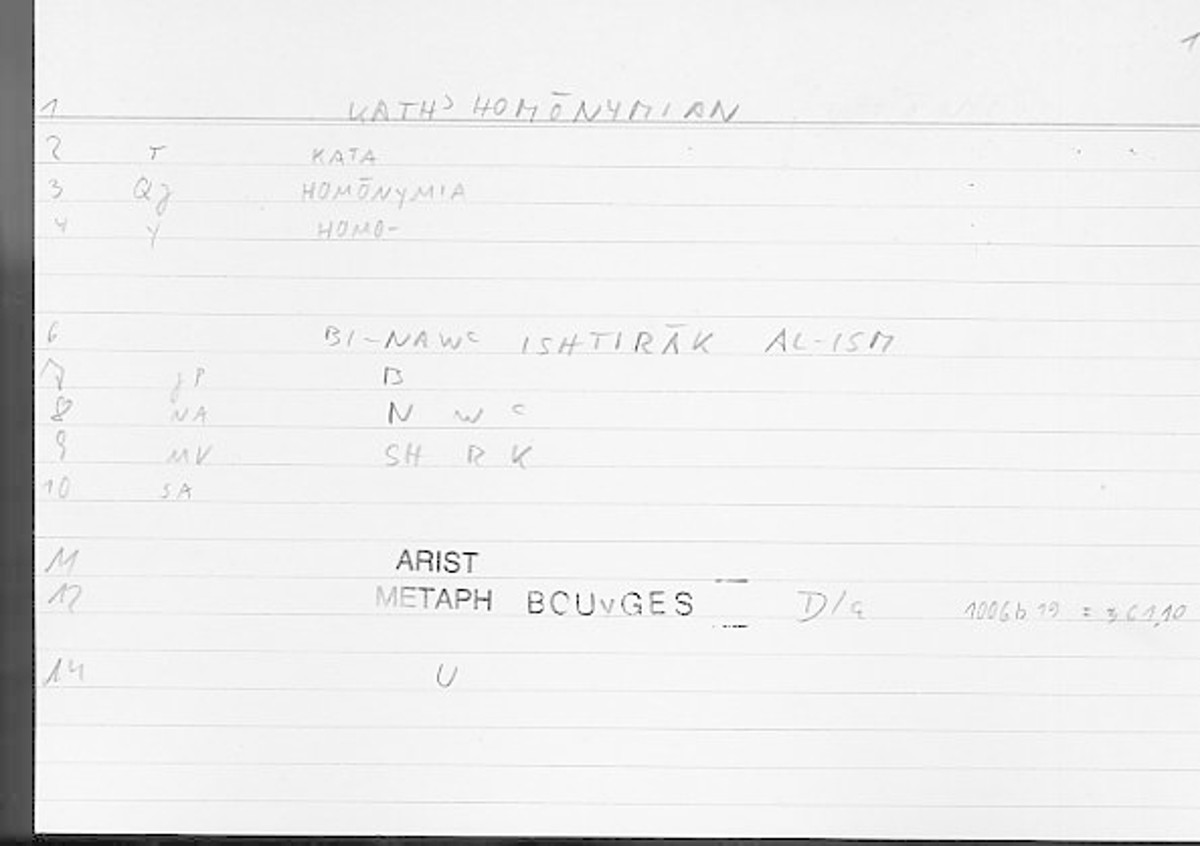 1
1 KATHʾ HOMŌNYMIAN
2 T KATA
3 Qj HOMŌNYMIA
4 Y HOMO-
6 BI-NAWʿ ISHTIRĀK AL-ISM
7 jP B
8 NA N W ʿ
9 MV SH R K
10 SA
11 ARIST
12 METAPH BOUYGES D/a 1006b 19 = 361,10
14 U